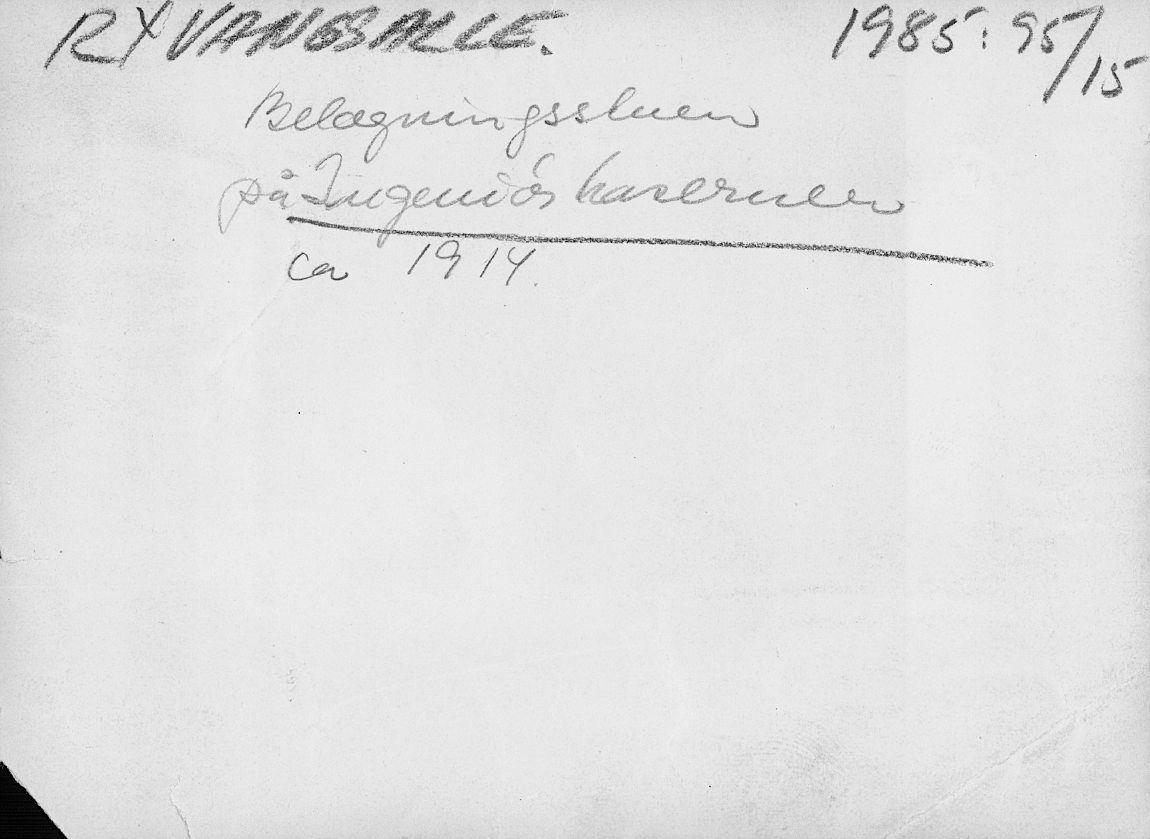 RYVANGSALLE. 1985: 95/15
Belægningsstuen
på Ingeniørkasernen
ca 1914.